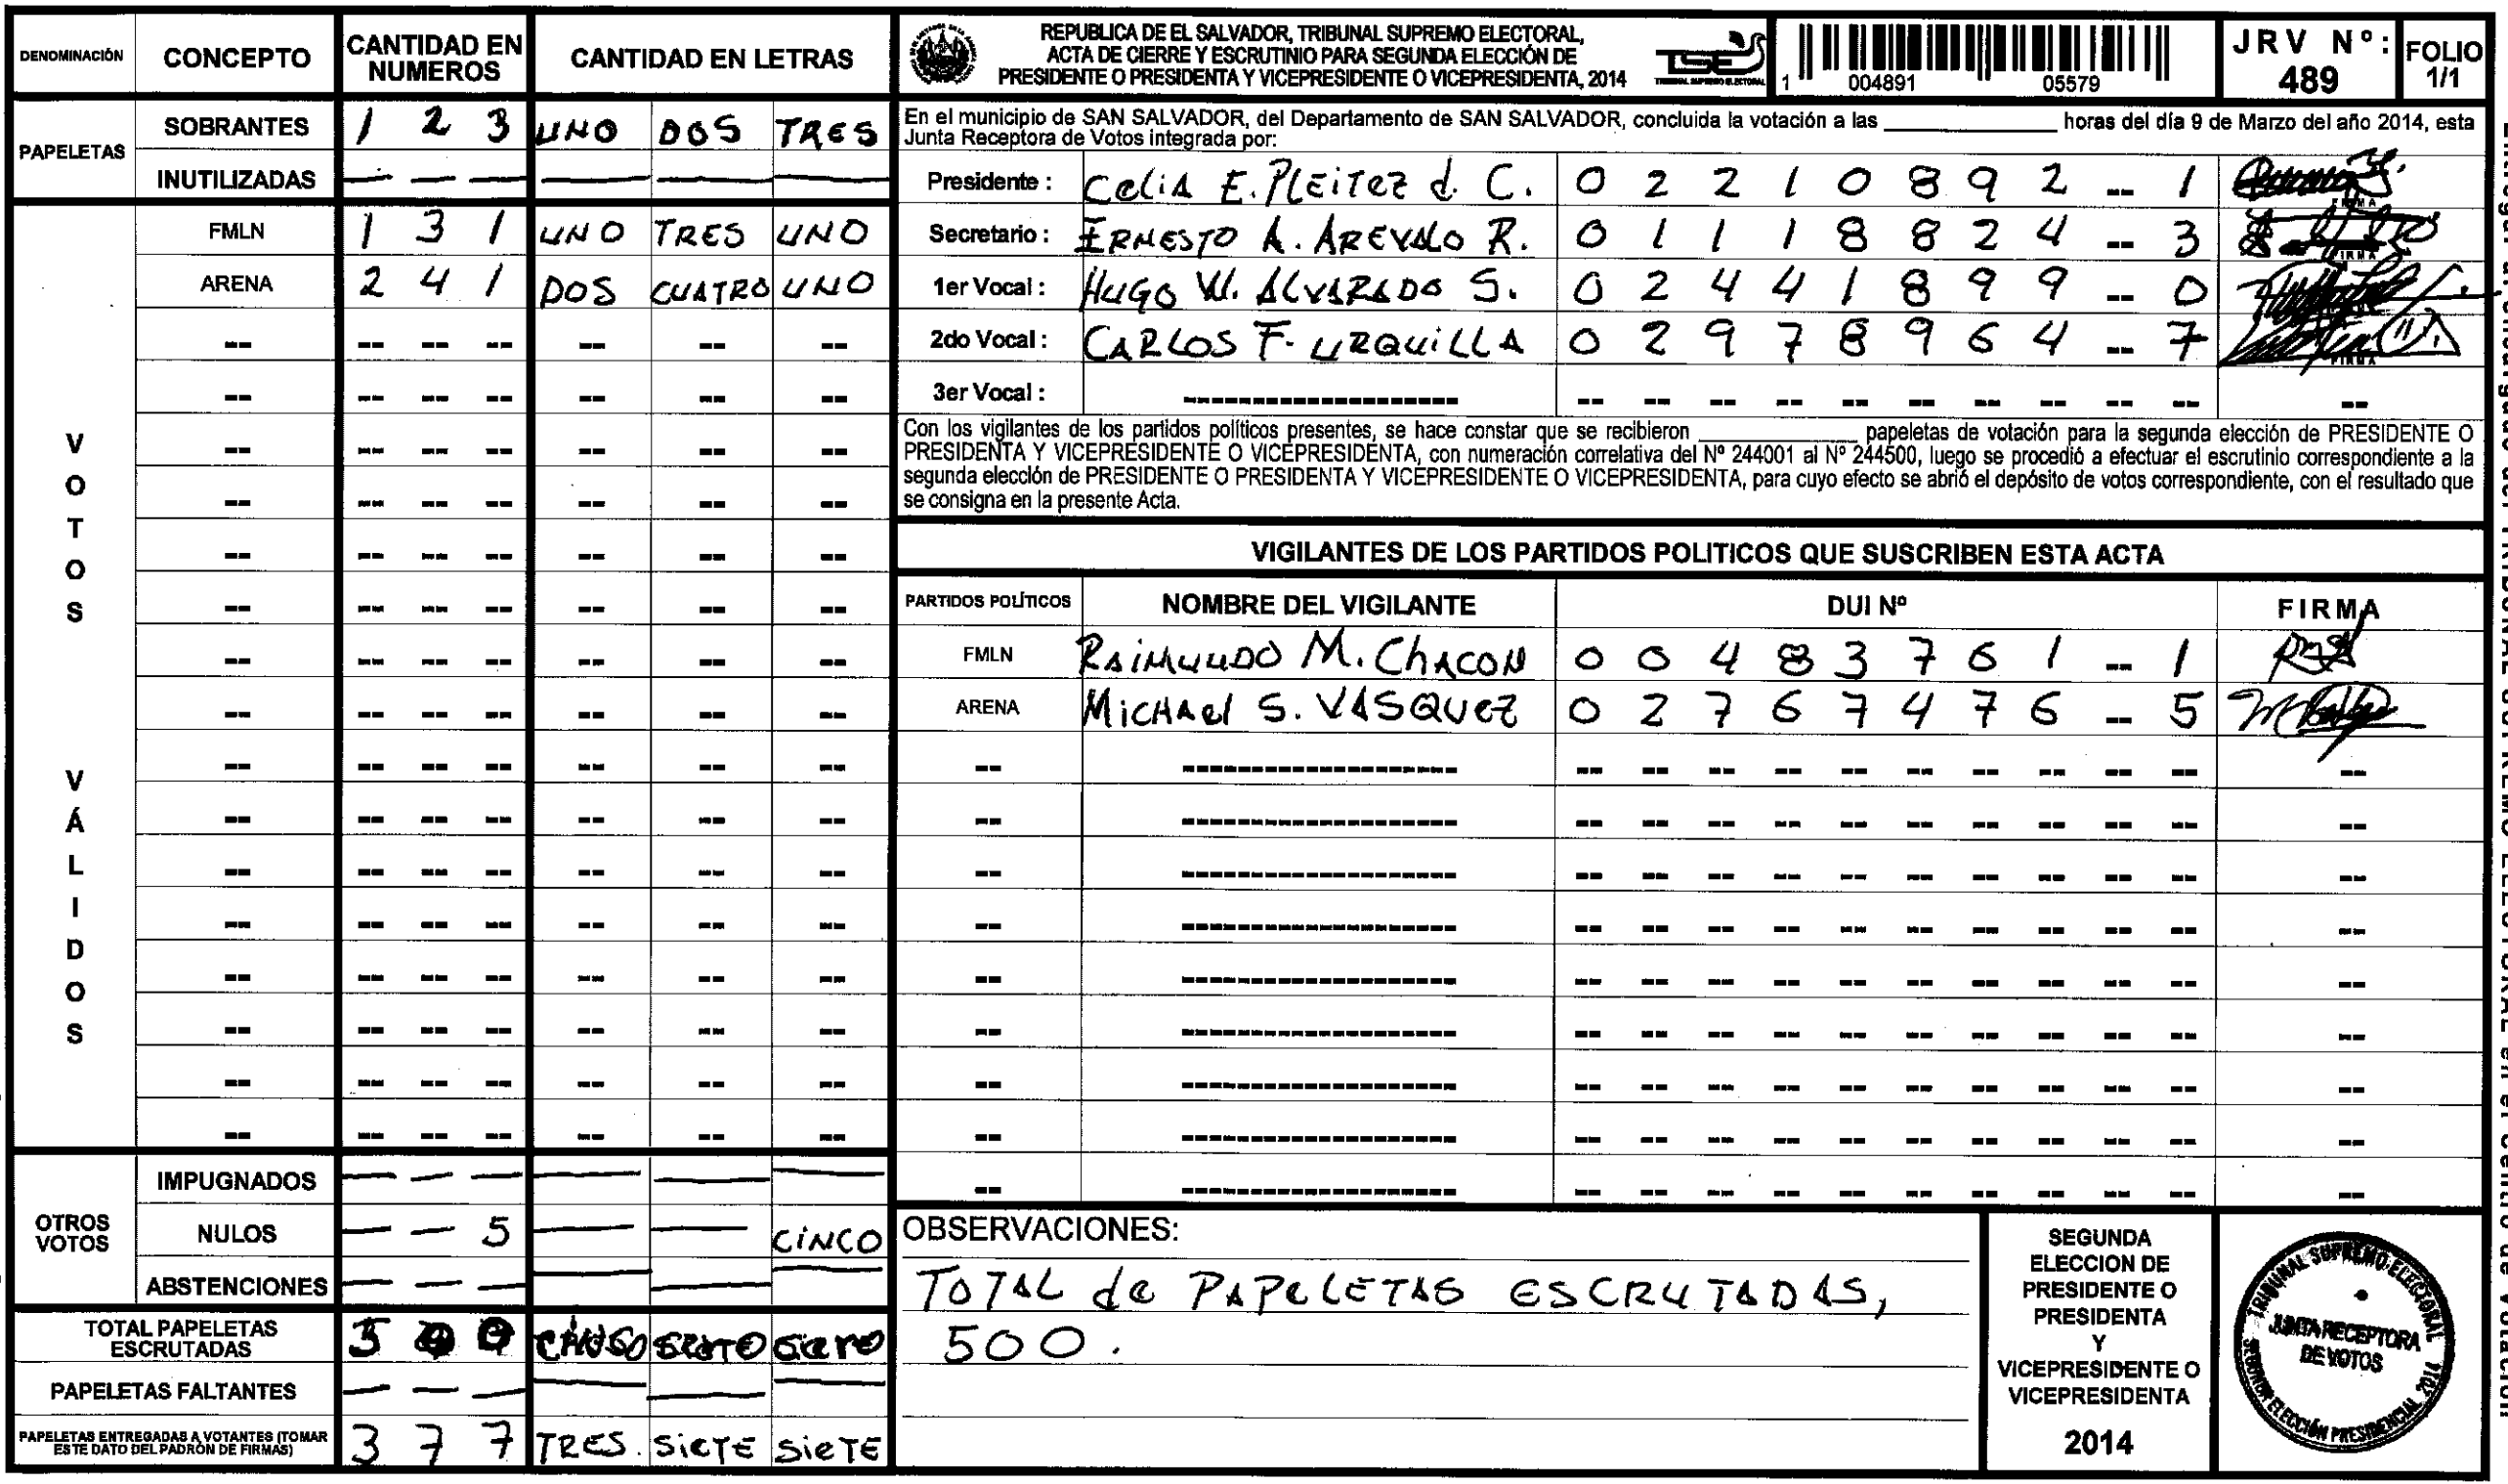 DENOMINACIÓN CONCEPTO CANTIDAD EN NUMEROS CANTIDAD EN LETRAS
PAPELETAS
SOBRANTES 1 2 3 UNO DOS TRES
INUTILIZADAS — — — — — —
VOTOS VÁLIDOS
FMLN 1 3 1 UNO TRES UNO
ARENA 2 4 1 DOS CUATRO UNO
OTROS VOTOS
IMPUGNADOS — — — — — —
NULOS — — 5 — — CINCO
ABSTENCIONES — — — — — —
TOTAL PAPELETAS ESCRUTADAS 5 0 0
PAPELETAS FALTANTES — — — — — —
PAPELETAS ENTREGADAS A VOTANTES (TOMAR ESTE DATO DEL PADRÓN DE FIRMAS) 3 7 7 TRES SIETE SIETE
REPUBLICA DE EL SALVADOR, TRIBUNAL SUPREMO ELECTORAL,
ACTA DE CIERRE Y ESCRUTINIO PARA SEGUNDA ELECCIÓN DE
PRESIDENTE O PRESIDENTA Y VICEPRESIDENTE O VICEPRESIDENTA, 2014
TSE
TRIBUNAL SUPREMO ELECTORAL
1 004891 05579
JRV Nº: 489
FOLIO 1/1
En el municipio de SAN SALVADOR, del Departamento de SAN SALVADOR, concluida la votación a las ____________ horas del día 9 de Marzo del año 2014, esta
Junta Receptora de Votos integrada por:
Presidente : Celia E. Pleitez d. C. 0 2 2 1 0 8 9 2 -- 1
FIRMA
Secretario : Ernesto A. Arevalo R. 0 1 1 1 8 8 2 4 -- 3
FIRMA
1er Vocal : Hugo W. Alvarado S. 0 2 4 4 1 8 9 9 -- 0
2do Vocal : Carlos F. Urquilla 0 2 9 7 8 9 6 4 -- 7
FIRMA
3er Vocal :
Con los vigilantes de los partidos políticos presentes, se hace constar que se recibieron ____________ papeletas de votación para la segunda elección de PRESIDENTE O
PRESIDENTA Y VICEPRESIDENTE O VICEPRESIDENTA, con numeración correlativa del Nº 244001 al Nº 244500, luego se procedió a efectuar el escrutinio correspondiente a la
segunda elección de PRESIDENTE O PRESIDENTA Y VICEPRESIDENTE O VICEPRESIDENTA, para cuyo efecto se abrió el depósito de votos correspondiente, con el resultado que
se consigna en la presente Acta.
VIGILANTES DE LOS PARTIDOS POLITICOS QUE SUSCRIBEN ESTA ACTA
PARTIDOS POLÍTICOS NOMBRE DEL VIGILANTE DUI Nº FIRMA
FMLN Raimundo M. Chacon 0 0 4 8 3 7 6 1 -- 1
ARENA Michael S. Vasquez 0 2 7 6 7 4 7 6 -- 5
OBSERVACIONES:
TOTAL de PAPELETAS ESCRUTADAS,
500.
SEGUNDA
ELECCION DE
PRESIDENTE O
PRESIDENTA
Y
VICEPRESIDENTE O
VICEPRESIDENTA
2014
TRIBUNAL SUPREMO ELECTORAL
JUNTA RECEPTORA
DE VOTOS
SEGUNDA ELECCIÓN PRESIDENCIAL 2014